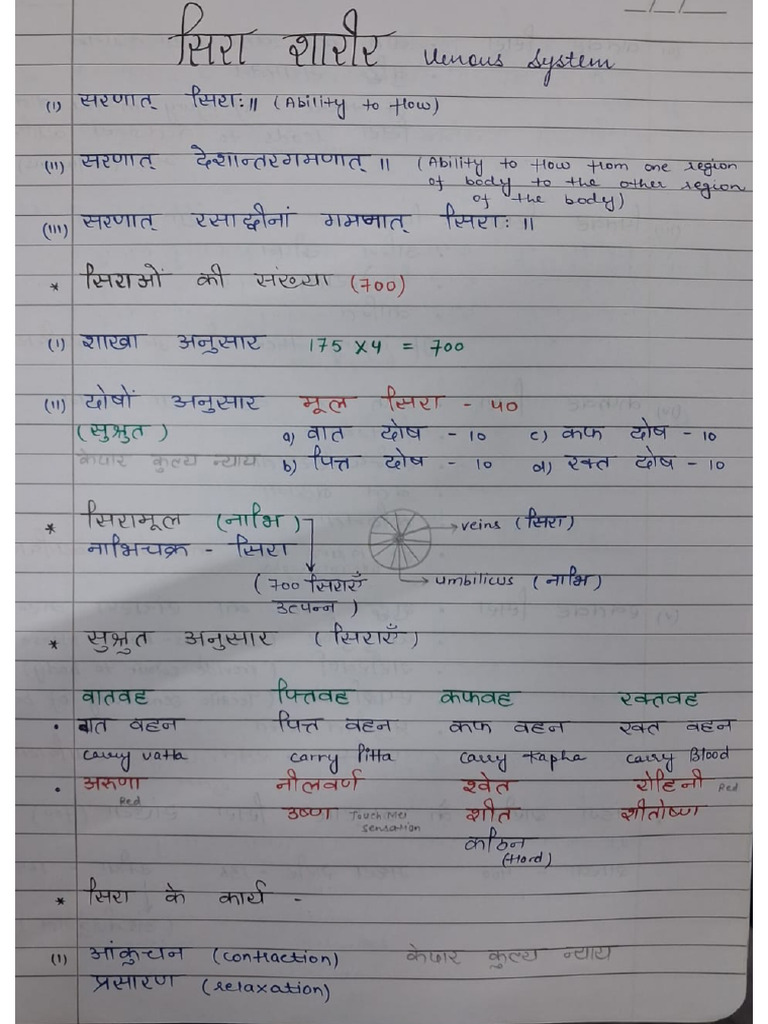 सिरा शारीर Venous System
(I) सरणात् सिराः॥ (Ability to flow)
(II) सरणात् देशान्तरगमणात् ॥ (Ability to flow from one region
of body to the other region
of the body)
(III) सरणात् रसादीनां गमनात् सिराः ॥
* सिराओं की संख्या (700)
(I) शाखा अनुसार 175 x 4 = 700
(II) दोषों अनुसार मूल सिरा - 40
(सुश्रुत) a) वात दोष - 10 c) कफ दोष - 10
केदार कुल्य न्याय b) पित्त दोष - 10 d) रक्त दोष - 10
* सिरामूल (नाभि) veins (सिरा)
नाभिचक्र - सिरा
(700 सिराएँ umbilicus (नाभि)
उत्पन्न)
* सुश्रुत अनुसार (सिराएँ)
वातवह पित्तवह कफवह रक्तवह
• वात वहन पित्त वहन कफ वहन रक्त वहन
carry vatta carry Pitta carry kapha carry Blood
• अरुणा नीलवर्ण श्वेत रोहिनी Red
Red उष्णा Touch Me! शीत शीतोष्ण
sensation
कठिन
(Hard)
* सिरा के कार्य -
(I) आंकुचन (contraction) केदार कुल्य न्याय
प्रसारण (relaxation)